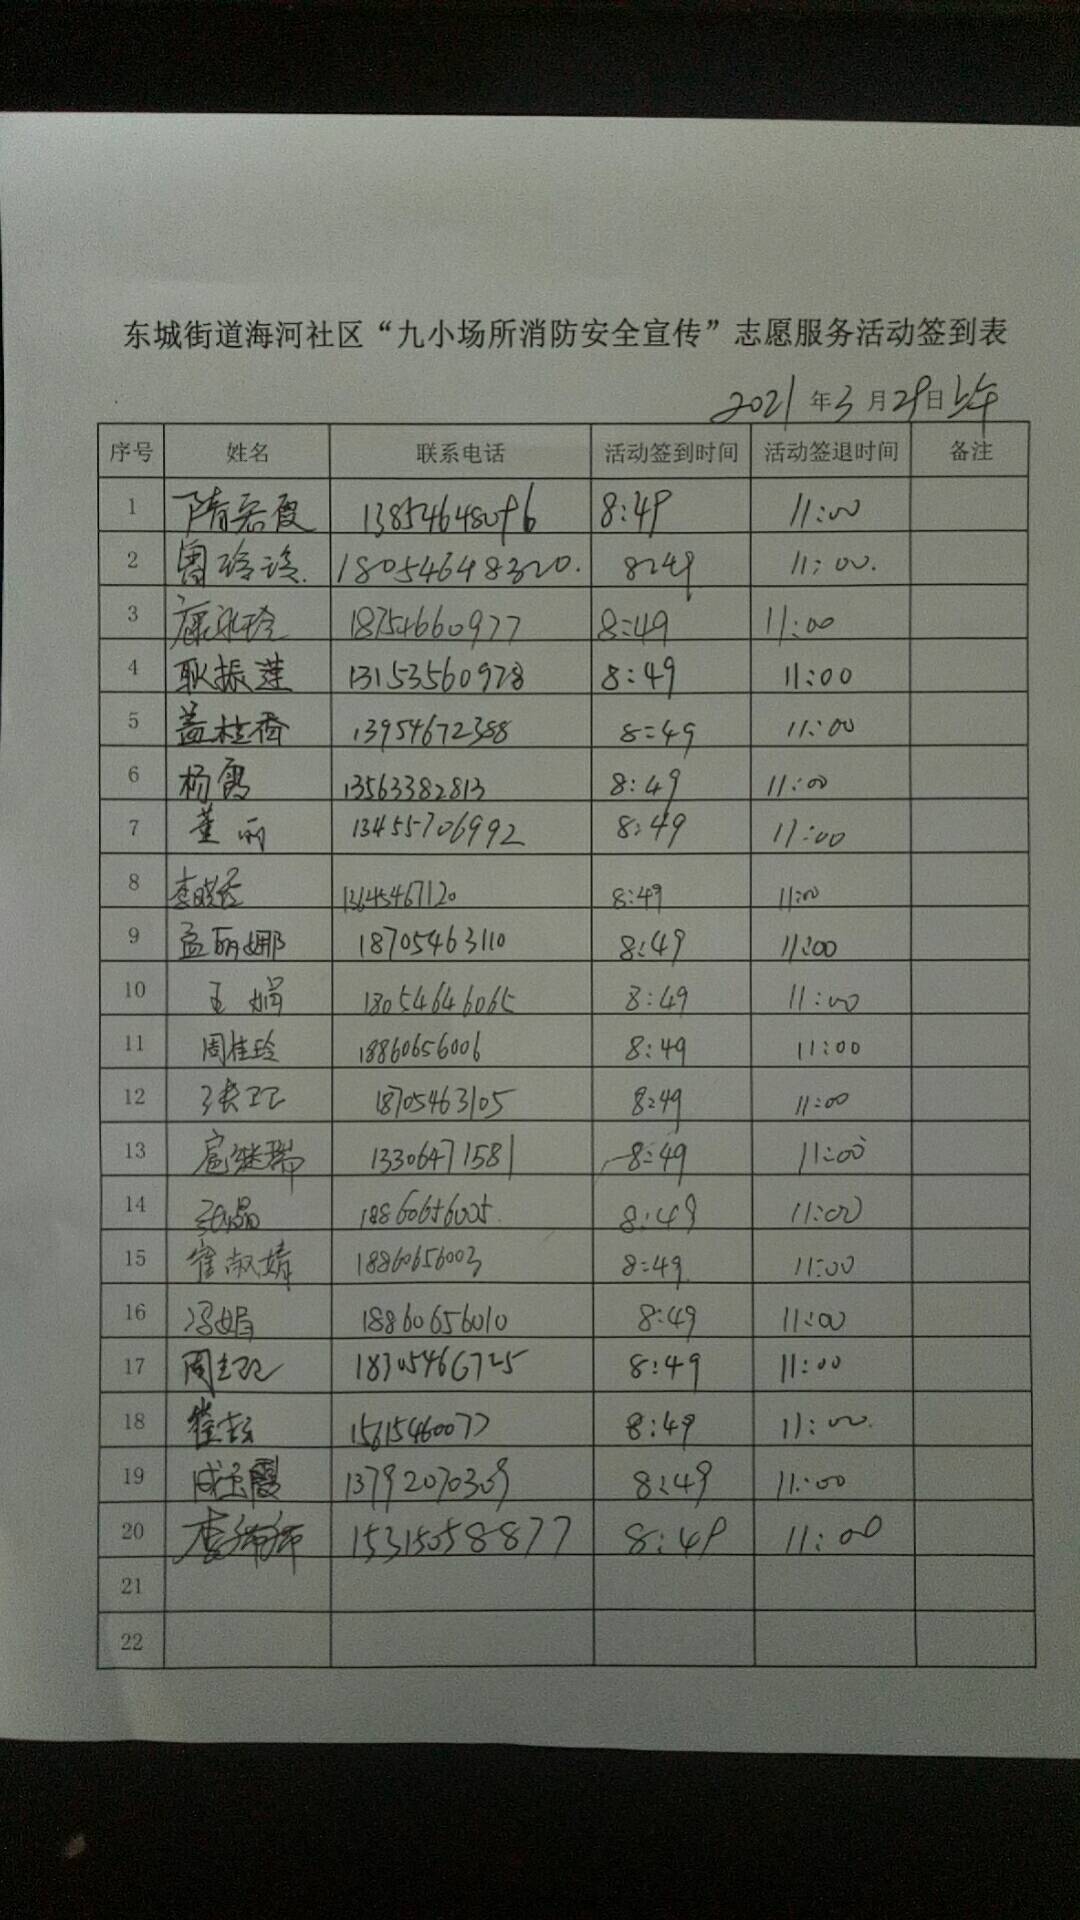 东城街道海河社区“九小场所消防安全宣传”志愿服务活动签到表
2021年3月29日上午
序号 姓名 联系电话 活动签到时间 活动签退时间 备注
1 隋若霞 13854648096 8:49 11:00
2 曾玲玲. 18054648320. 8:49 11:00.
3 康永玲 18754660977 8:49 11:00
4 耿振莲 13153560978 8:49 11:00
5 盖桂香 13954672388 8:49 11:00
6 杨霞 13563382813 8:49 11:00
7 董丽 13455706992 8:49 11:00
8 李晓秀 13645467120 8:49 11:00
9 孟丽娜 18705463110 8:49 11:00
10 王娟 18054646065 8:49 11:00
11 周桂玲 18860656006 8:49 11:00
12 张卫卫 18705463105 8:49 11:00
13 扈继瑞 13306471581 8:49 11:00
14 张晶 18860656005 8:49 11:00
15 崔淑婧 18860656003 8:49 11:00
16 冯娟 18860656010 8:49 11:00
17 周 18305466725 8:49 11:00
18 崔 15615460077 8:49 11:00
19 成玉霞 13792070309 8:49 11:00
20 李师师 15315058877 8:49 11:00
21
22